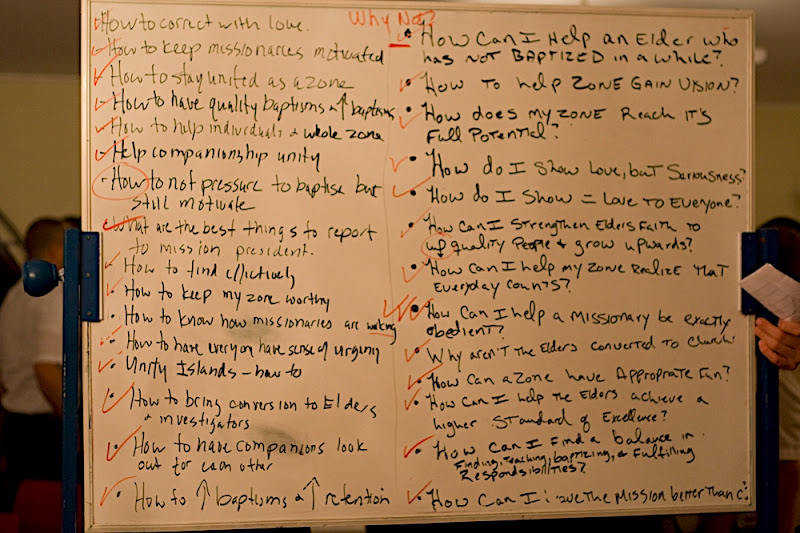 Why Not?
How to correct with love.
How to keep missionaries motivated
How to stay united as a zone
How to have quality baptisms & ↑ baptisms
How to help individuals & whole zone
Help companionship unity
How to not pressure to baptise but
still motivate
What are the best things to report
to mission president.
How to find effictively
How to keep my zone worthy
How to know how missionaries are working
How to have everyon have sense of urgency
Unity Islands - how to
How to bring conversion to Elders
& investigators
How to have companions look
out for each other
How to ↑ baptisms & ↑ retention
How Can I Help an Elder who
has NOT BAPTIZED in a while?
How To help Zone Gain Vision?
How does my Zone Reach it's
Full Potential?
How do I Show Love, but Seriousness?
How do I Show = Love To Everyone?
How Can I Strengthen Elders Faith to
up quality People & grow upwards?
How Can I help my Zone Realize that
Everyday Counts?
How Can I help a Missionary be Exactly
obedient?
Why aren't the Elders converted to Church?
How Can a Zone have Approprate Fun?
How Can I help the Elders achieve a
higher Standard of Excellence?
How Can I Find a balance in
Finding, Teaching, baptizing, & Fulfilling
Responsibilities?
How Can I the Mission better than